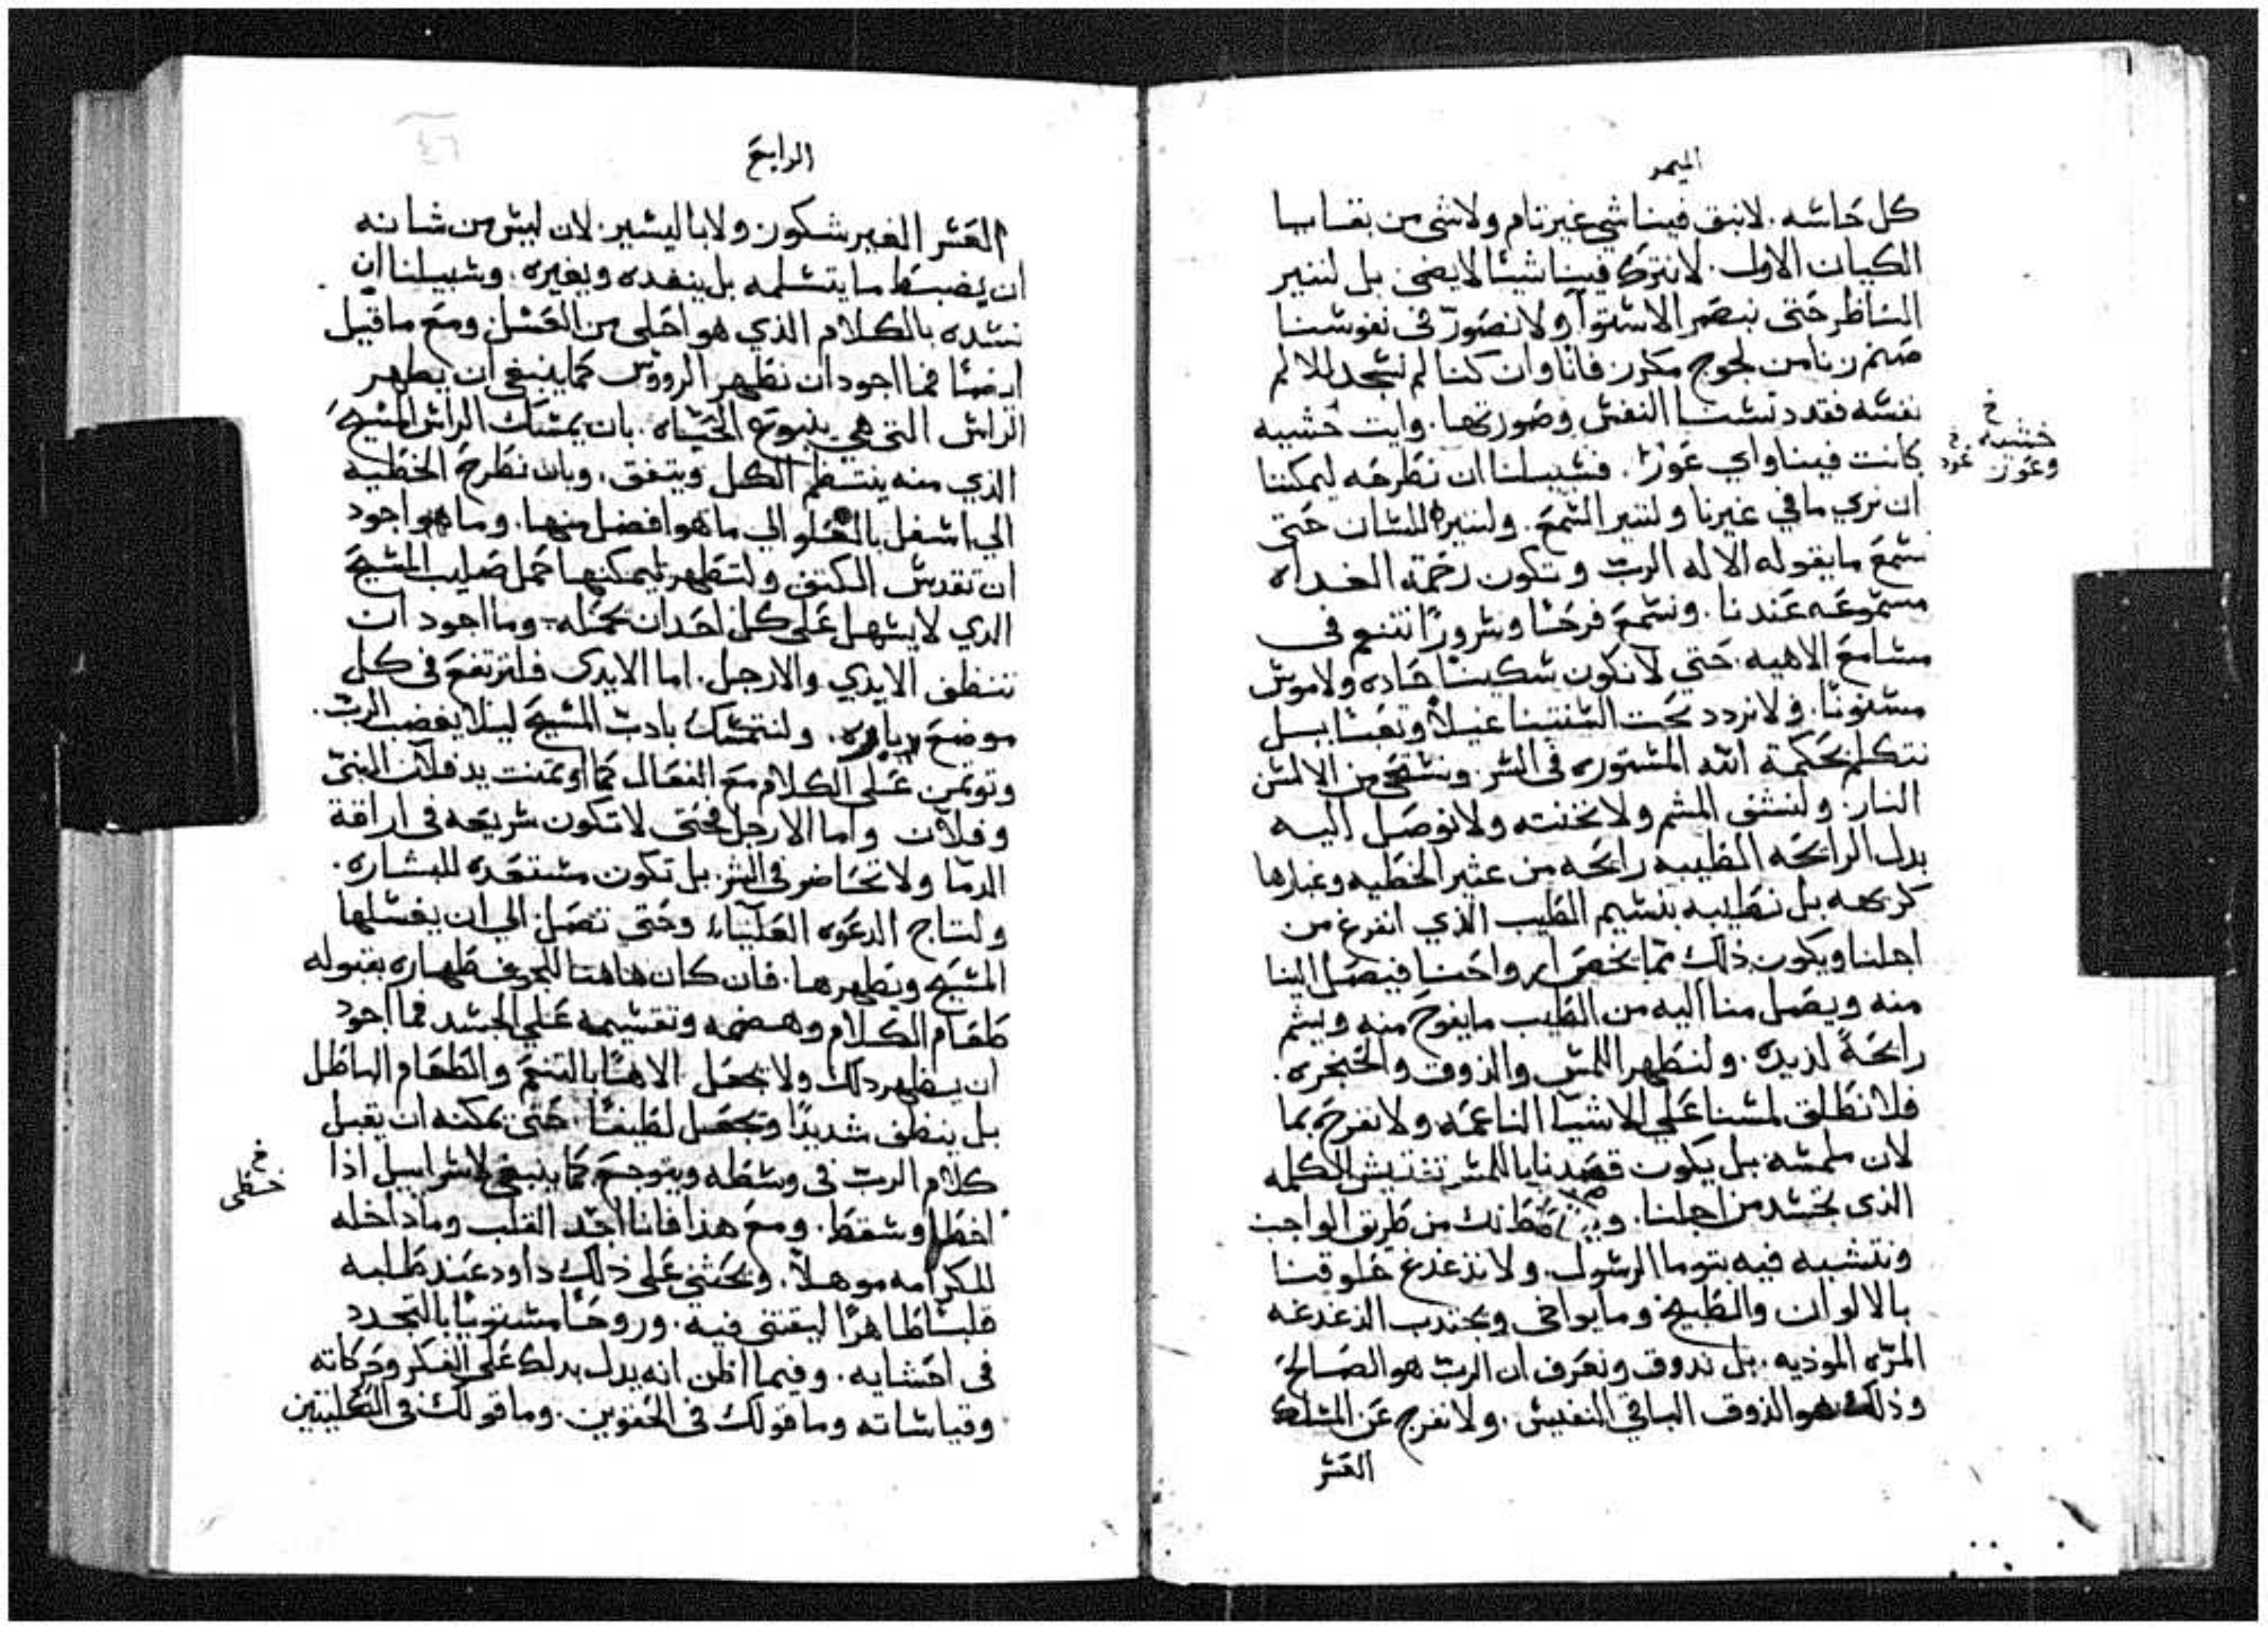 الميمر
كل حاسه. لانبق فينا شي غير تام ولاشي من بقايا
الكيان الاول. لانترك فينا شيئا لايضي بل لننير
الناظر حتى نبصر الاستوآ ولانصور في نفوسنا
صنم زنا من لجوج مكرر فاننا وان كنا لم نسجد للالم
نفسه فقد دنسنا النفس وصورتها. وايت خشبيه
كانت فينا واي عور. فسبيلنا ان نطرحه ليمكننا
ان نري مافي غيرنا ولننير السمع. ولننير اللسان حتى
نسمع مايقوله الاله الرب وتكون رحمته الغداه
مسموعه عندنا. ونسمع فرحا وسرورا نتنعم في
مسامع الاهيه. حتي لانكون سكينا حاده ولاموس
مسنونا. ولانردد تحت السنتنا عنـلا وتعبا بـل
نتكلم بحكمة الله المستوره في السر ونستحي من الالسن
النار. ولنشفي المشم ولانخنته ولانوصل اليه
بدل الرايحه الطيبه رايحه من عثير الخطيه وغبارها
كريهه بل نطيبه بنسيم الطيب الذي انفرغ من
اجلنا ويكون ذلك مما يخص ارواحنا فيصل الينا
منه ويصل منا اليه من الطيب مايفوح منه ويشم
رايحةً لذيذه. ولنطهر اللمس والذوق والحنجره.
فلا نطلق لمسنا علي الاشيآ الناعمه ولانفرح بما
لان ملمسه بل يكون قصدنا باللمس تفتيش الكلمه
الذي تجسد من اجلنا. من طريق الواجب
ونتشبه فيه بتوما الرسول. ولاندغدغ حلوقنا
بالالوان والطبيخ ومايواخي ويجتدب الدغدغه
المره الموديه. بل ندوق ونعرف ان الرب هو الصالح
وذلك هو الذوق الباقي النفيس. ولانفرج عن المسلك
العسر
خ
خشبه
وعور
الرابع
العسر الغير شكور ولا باليسير. لان ليس من شانه
ان يضبط مايتسلمه بل ينفده ويغيره. وسبيلنا ان
نسده بالكلام الذي هو احلي من العسل ومع ماقيل
ايضا فما اجود ان نطهر الرووس كما ينبغي ان يطهر
الراس التي هي ينبوع الحياه. بان يمسك الراس المسيح
الذي منه ينتظم الكل ويتفق. وبان نطرح الخطيه
الي اسفل بالعلو الي ماهو افضل منها. وماهو اجود
ان تقدس الكتف ولتطهر ليمكنها حمل صليب المسيح
الدي لايسهل علي كل احد ان يحمله. وما اجود ان
تنظف الايدي والارجل. اما الايدي فلترتفع في كل
موضع برياوره. ولنتمسك بادب المسيح ليلا يغضب الرب.
وتوتمن علي الكلام مع الفعال كما اوتمنت يد فلان النبي
وفلان واما الارجل فحتي لاتكون سريعه في اراقة
الدما ولاتحاضر في الشر. بل تكون مستعده للبشاره.
ولتاج الدعوه العلياء وحتي تصل الي ان يغسلها
المسيح ويطهرها. فان كان هاهنا للجوف طهاره بقبوله
طعام الكلام وهضمه وتقسيمه علي الجسد فما اجود
ان يطهر دلك ولايجعل الاهًا بالتنعم والطعام الباطل
بل ينظف شديدًا ويجعل لطيفًا. حتى يمكنه ان يقبل
كلام الرب في وسطه ويتوجع كما ينبغي لاسراييل اذا
اخطا وسقط. ومع هذا فانا اجد القلب وماداخله
للكرامه موهلاً. ويحثني علي ذلك داود عند طلبه
قلبًا طاهرًا ليقتني فيه. وروحًا مستويًا بالتجدد
في احشايه. وفيما اظن انه يدل بدلك علي الفكر وحركاته
وقياساته وماقولك في الحقوين. وماقولك في الكليتين
خ
خطي